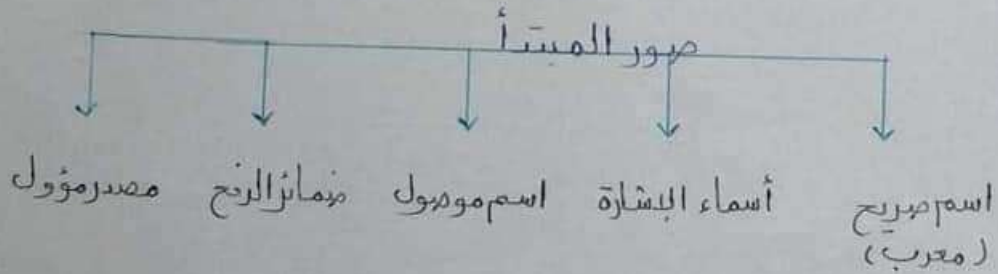 صور المبتدأ
اسم صريح (معرب)
أسماء الإشارة
اسم موصول
ضمائر الرفع
مصدر مؤول